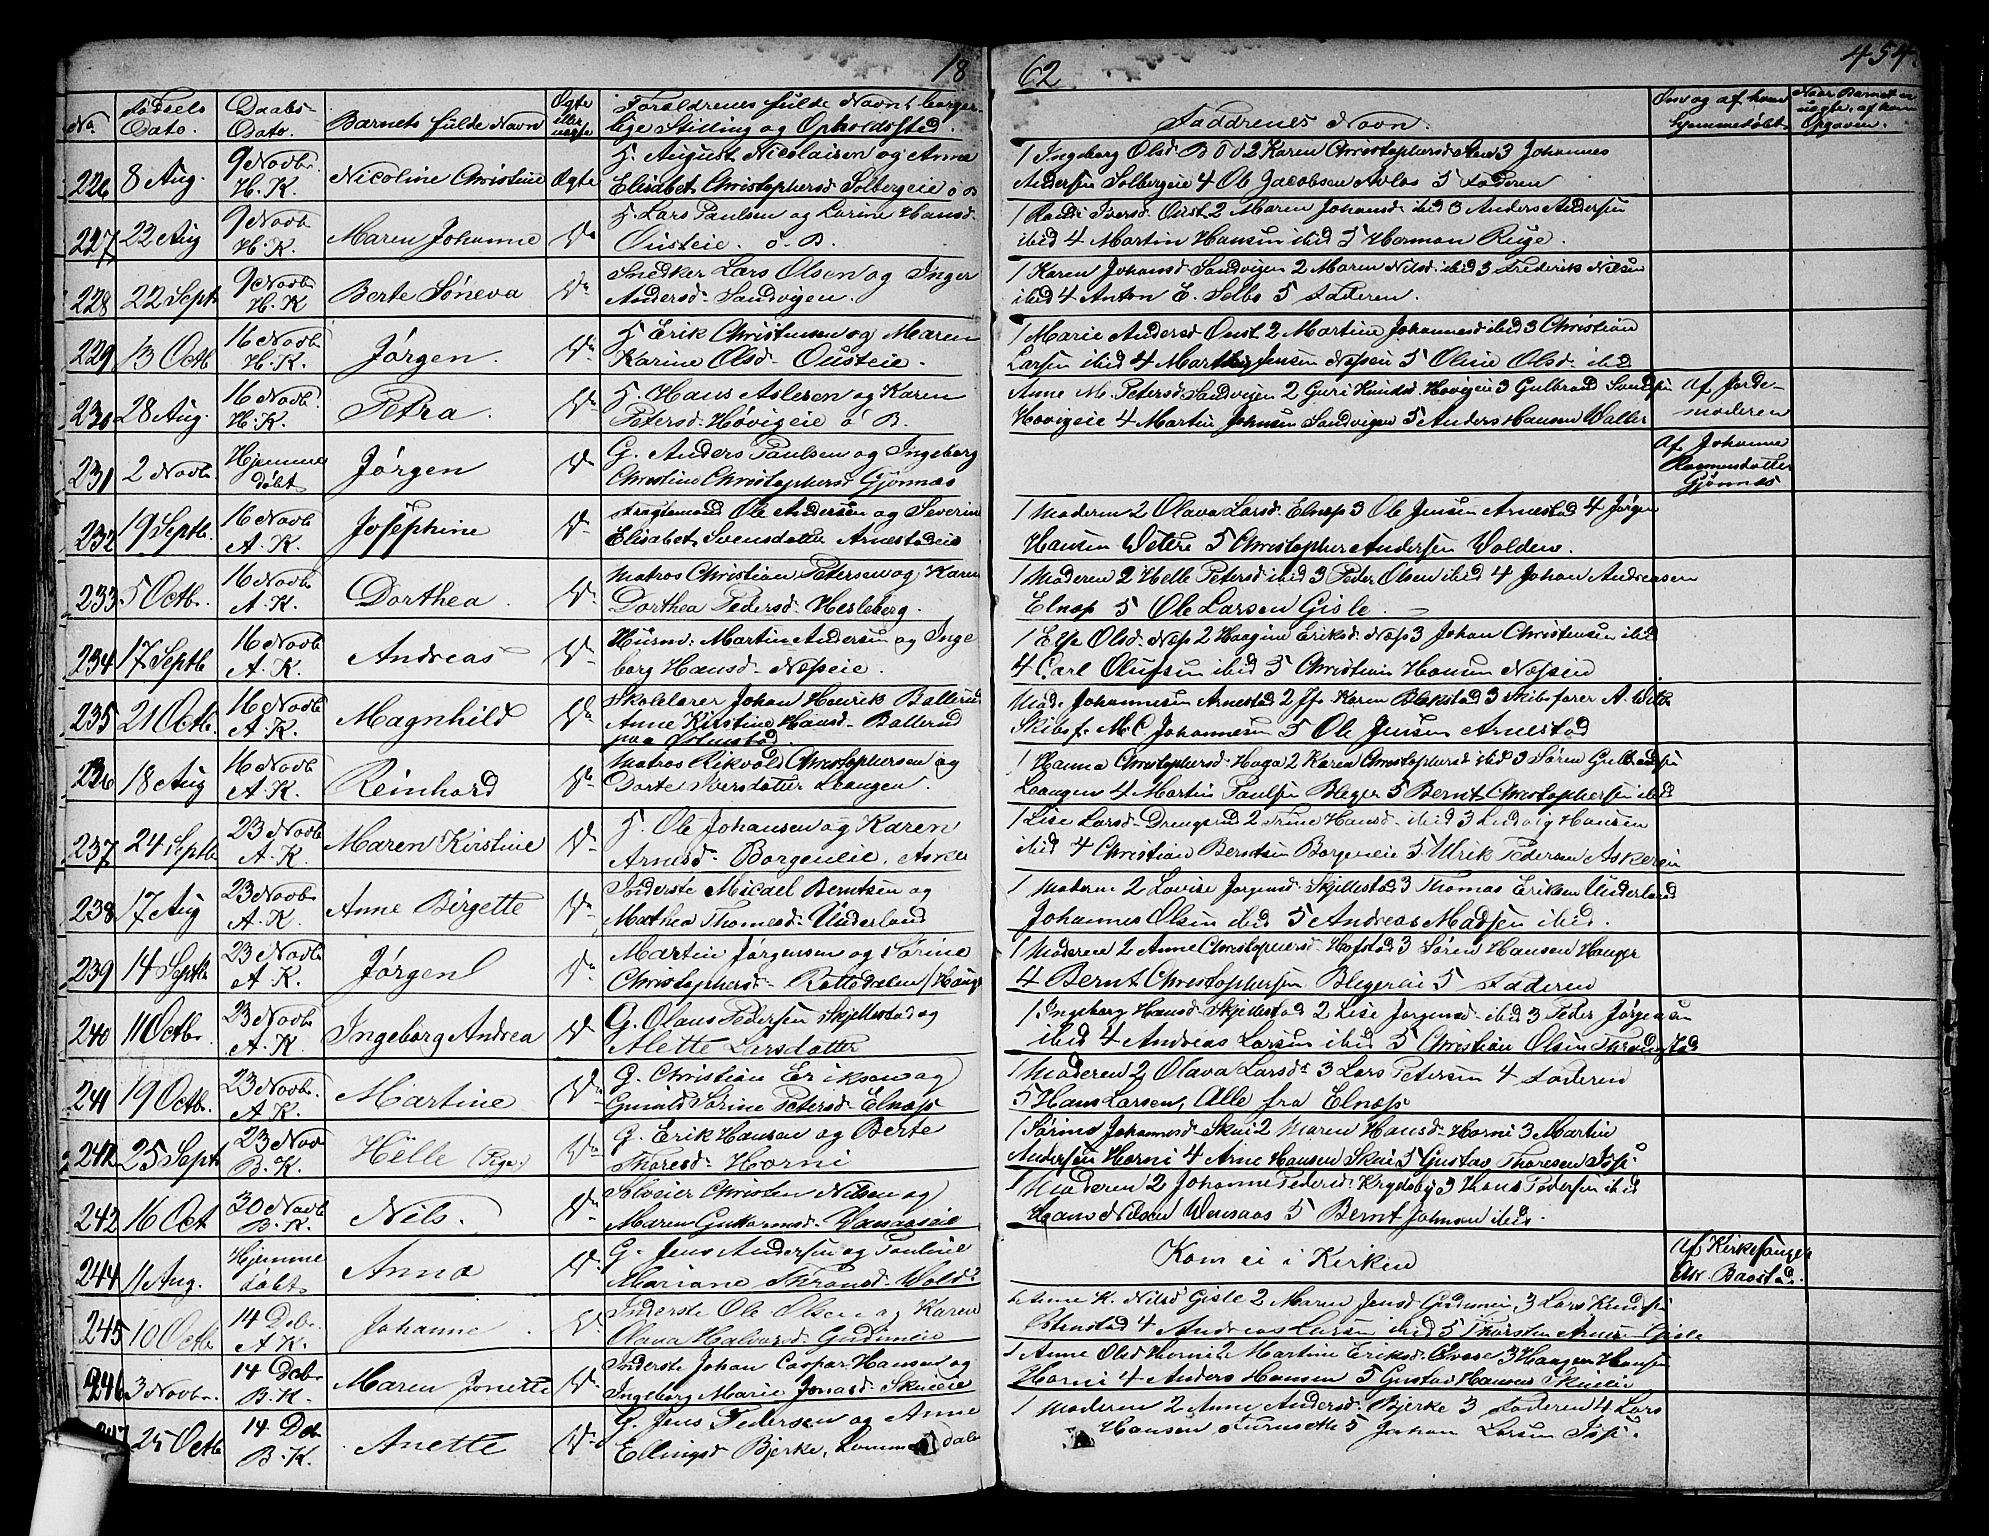 18
62
454.
No
Fødsels Dato.
Daabs-Dato.
Barnets fulde Navn
Ægte eller uægte
Forældrenes fulde Navn, borgerlige Stilling og Opholdssted.
Faddrenes Navn.
Om og af hvem hjemmedøbt.
Naar Barnet er uægte, af hvem Opgaven.
226 8 Aug. 9 Novbr. H. K. Nicoline Christine Ægte
G. August Nicolaisen og Anna
Elisabet Christophersd. Solbergeie
1 Ingeborg Olsd. 2 Karen Christophersd. 3 Johannes
Andersen Solbergeie 4 Ole Jacobsen Avlos 5 Faderen
227 22 Aug 9 Novbr. H. K. Maren Johanne Do
G. Lars Paulsen og Lorine Hansd.
Ousteie. o. B.
1 Randi Iversd. Oust 2 Maren Johansd. ibid 3 Anders Andersen
ibid 4 Martin Hansen ibid 5 Herman Ruge.
228 22 Septb 9 Novbr. H. K Berte Søneva Do
Snedker Lars Olsen og Inger
Andersd. Sandvigen.
1 Karen Johansd. Sandvigen 2 Maren Nilsd. ibid 3 Frederik Nilsen
ibid 4 Anton E. Selbo 5 Faderen.
229 13 Octb 16 Novb. H. K. Jørgen. Do
G. Erik Christensen og Maren
Karine Olsd. Ousteie.
1 Marie Andersd Oust 2 Martine Johannesd ibid 3 Christian
Larsen ibid 4 Jensen Nesseie 5 Oline Olsd. ibid
230 28 Aug. 16 Novb. H. K. Petra. Do
G. Hans Aslesen og Karen
Petersd. Høvigeie o B.
Anne M. Petersd Sandvigen 2 Guri Knudsd. Høvigeie 3 Gulbrand
Høvigeie 4 Martin Johnsen Sandvigen 5 Anders Hansen Waller
af Jorde-
moderen
231 2 Novb. Hjemme døbt Jørgen Do
G. Anders Paulsen og Ingeborg
Christine Christophersd Gjønnæs
af Johanne
Rasmusdatter
Gjønnæs
232 19 Septb. 16 Novb A. K. Josephine Do
Fragtemand Ole Andersen og Severine
Elisabet Svensdatter Arnestadeie
1 Moderen 2 Olava Larsd. Elnæs 3 Ole Jensen Arnestad 4 Jørgen
Hansen 5 Christopher Andersen Volden.
233 5 Octb. 16 Novb. A. K. Dorthea. Do
Matros Christian Petersen og Karen
Dorthea Pedersd. Hesleberg.
1 Moderen 2 Helle Petersd ibid 3 Peder Olsen ibid 4 Johan Andreasen
Elnæs 5 Ole Larsen Gisle.
234 17 Septb 16 Novb. A. K. Andreas Do
Husmd. Martin Andersen og Inge
borg Hansd. Næsseie.
1 Else Olsd. Næs 2 Eriksd. Næs 3 Johan Christensen ibid
4 Carl Olufsen ibid 5 Christian Hansen Næsseie
235 21 Octb. 16 Novb A. K. Magnhild Do
Skolelærer Johan Henrik Ballerud
Anne Kirstine Hansd. Ballerud
paa Østenstad.
Mad. Johannesen Arnestad 2 Karen Blakstad 3 Skibsfører A.
Skibsf. M. C. Johannesen 5 Ole Jensen Arnestad
236 18 Aug 16 Novb A. K. Reinhard Do
Matros Rikvold Christophersen og
Dorte Iversdatter Leangen.
1 Hanna Christophersd. Haga 2 Karen Christophersd. ibid 3 Søren Gulbrandsen
Leangen 4 Martin Paulsen Bleger 5 Bernt Christophersen ibid
237 24 Septb 23 Novb A. K. Maren Kirstine Do
G. Ole Johansen og Karen
Arnesd. Borgeneie, Asker
1 Lise Larsd. Drengsrud 2 Trine Hansd. ibid 3 Ludvig Hansen
ibid 4 Christian Berntsen Borgeneie 5 Ulrik Pedersen
238 17 Aug 23 Novb. A. K. Anne Birgette Do
Inderste Micael Berntsen og
Mathea Thomesd. Underland
1 Moderen 2 Lovise Jørgensd. Skjellestad 3 Thomas Eriksen Underland
Johannes Olsen ibid 5 Andreas Madsen ibid.
239 14 Septb 23 Novb A. K. Jørgen Do
Martin Jørgensen og Sørine
Christophersd.
1 Moderen 2 Anne Christophersd. Hofstad 3 Søren Hansen Hauger
4 Bernt Christophersen Blegereie 5 Faderen
240 11 Octb. 23 Novb A. K. Ingeborg Andrea Do
G. Olaus Pedersen Skjellestad og
Alette Larsdatter
1. Ingeborg Hansd. Skjellestad 2 Lise Jørgensd. ibid 3 Peder Jørgensen
ibid 4 Andreas Larsen ibid 5 Christian Olsen
241 19 Octb. 23 Novb. A. K. Martine Do
G. Christian Eriksen og
Gunild Sørine Petersd. Elnæs
1 Moderen 2 Olava Larsd. 3 Lars Petersen 4 Faderen
5 Hans Larsen, Alle fra Elnæs
242 25 Sept 23 Nov B. K. Helle (Pige.) Do
G. Erik Hansen og Berte
Thoresd. Horni
1 Sørine Johannesd. Skui 2 Maren Hansd. Horni 3 Martin
Andersen Horni 4 Arne Hansen Skui 5 Gustav Thoresen
242 16 Oct 30 Novb B. K. Nils. Do
Selveier Christen Nilsen og
Maren Guttormsd.
1 Moderen 2 Johanne Pedersd. Krydsby 3 Hans Pedersen ibid
Hans Nilsen 5 Bernt Johnsen ibid.
244 11 Aug. Hjemme døbt. Anna Do
G. Jens Andersen og Pauline
Mariane
Kom ei i Kirken
af Kirkesanger
Baastad.
245 10 Octb 14 Debr. A K. Johanne. Do
Inderste Ole Olsen og Karen
Olava Halvorsd.
1 Anne K. Nilsd Gisle 2 Maren Jensd. 3 Lars Knudsen
Østenstad 4 Andreas Larsen ibid 5 Thorsten Arnesen Gisle
246 3 Novbr. 14 Debr B. K. Maren Jonette Do
Inderste Johan Caspar Hansen og
Ingeborg Marie Jonasd. Skuieie
1 Anne Olsd Horni 2 Martine Eriksd. 3 Haagen Hansen
Horni 4 Anders Hansen 5 Gustav Hansen Skuieie
247 25 Octb 14 Deb B. K. Anette Do
G. Jens Pedersen og Anne
Ellingsd Bjerke, Lommedalen
1 Moderen 2 Anne Andersd. Bjerke 3 Faderen 4 Lars
Hansen 5 Johan Larsen